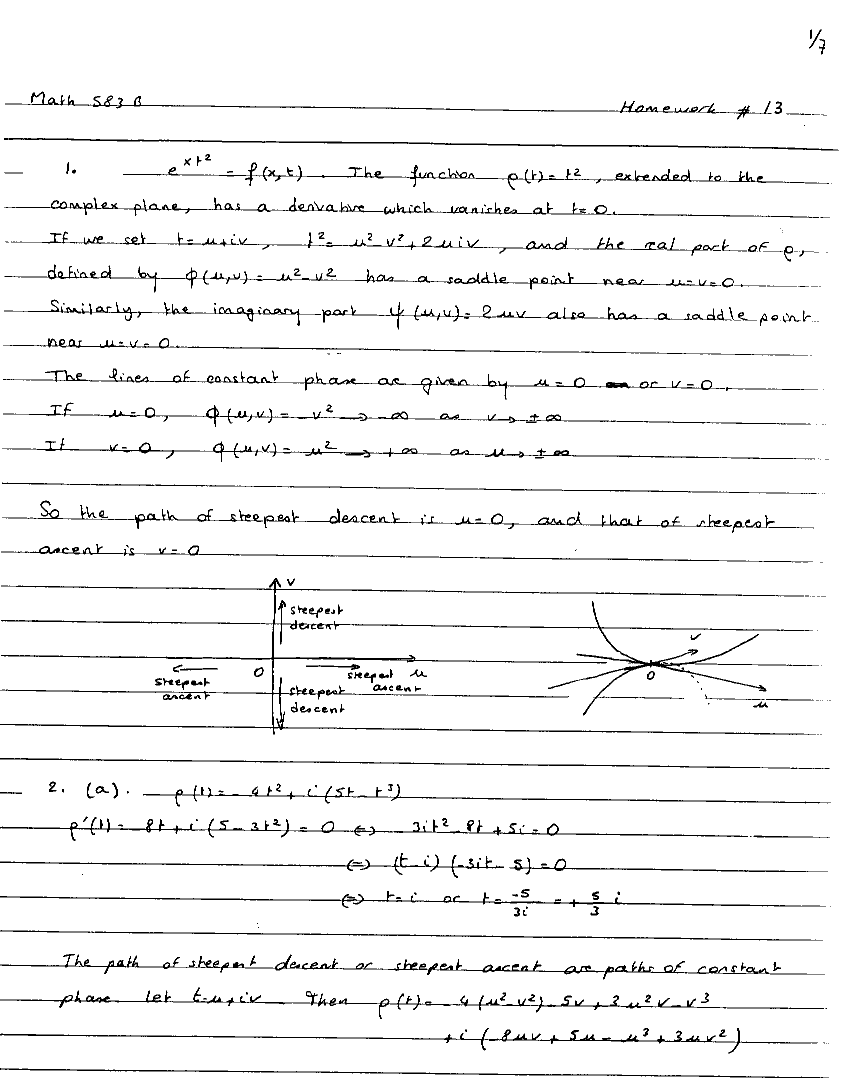 1/7
Math 583 B Homework # 13
1. e^{xt²} = f(x,t). The function ρ(t) = t², extended to the
complex plane, has a derivative which vanishes at t=0.
If we set t=u+iv, t² = u²-v²+2uiv, and the real part of ρ,
defined by φ(u,v) = u²-v² has a saddle point near u=v=0.
Similarly, the imaginary part ψ(u,v) = 2uv also has a saddle point
near u=v=0.
The lines of constant phase are given by u=0 or v=0.
If u=0, φ(u,v) = -v² → -∞ as v → ±∞
If v=0, φ(u,v) = u² → +∞ as u → ±∞
So the path of steepest descent is u=0, and that of steepest
ascent is v=0
v
steepest
descent
steepest
ascent
0
steepest
ascent
u
steepest
descent
v
0
u
2. (a). ρ(t) = -4t² + i(5t - t³)
ρ'(t) = -8t + i(5-3t²) = 0 ⇔ -3it² - 8t + 5i = 0
⇔ (t-i)(-3it-5) = 0
⇔ t=i or t= -5/3i = + 5/3 i
The path of steepest descent or steepest ascent are paths of constant
phase. Let t=u+iv. Then ρ(t) = -4(u²-v²) - 5v + 3u²v - v³
+i (-8uv + 5u - u³ + 3uv²)